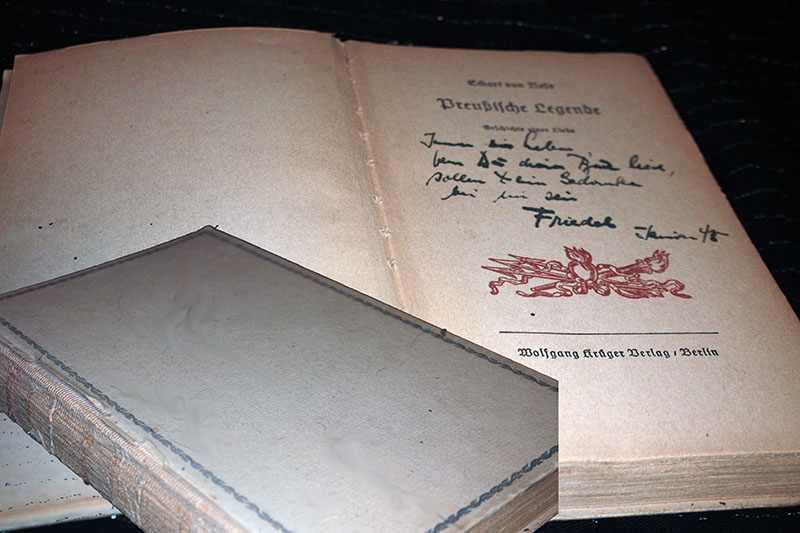 Eckart von Naso
Preußische Legende
Geschichte einer Liebe
wenn Du dieses Buch liest,
sollen Deine Gedanken
bei mir sein
Friedel
Wolfgang Krüger Verlag / Berlin